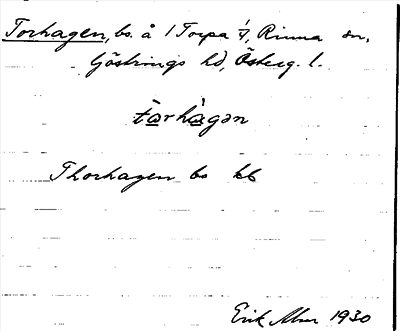 Torhagen, bs. å 1 Torpa 1/4, Rinna sn,
Göstrings hd, Österg. l.
tårhàgən
Thorhagen bs kb
Erik Abur 1930